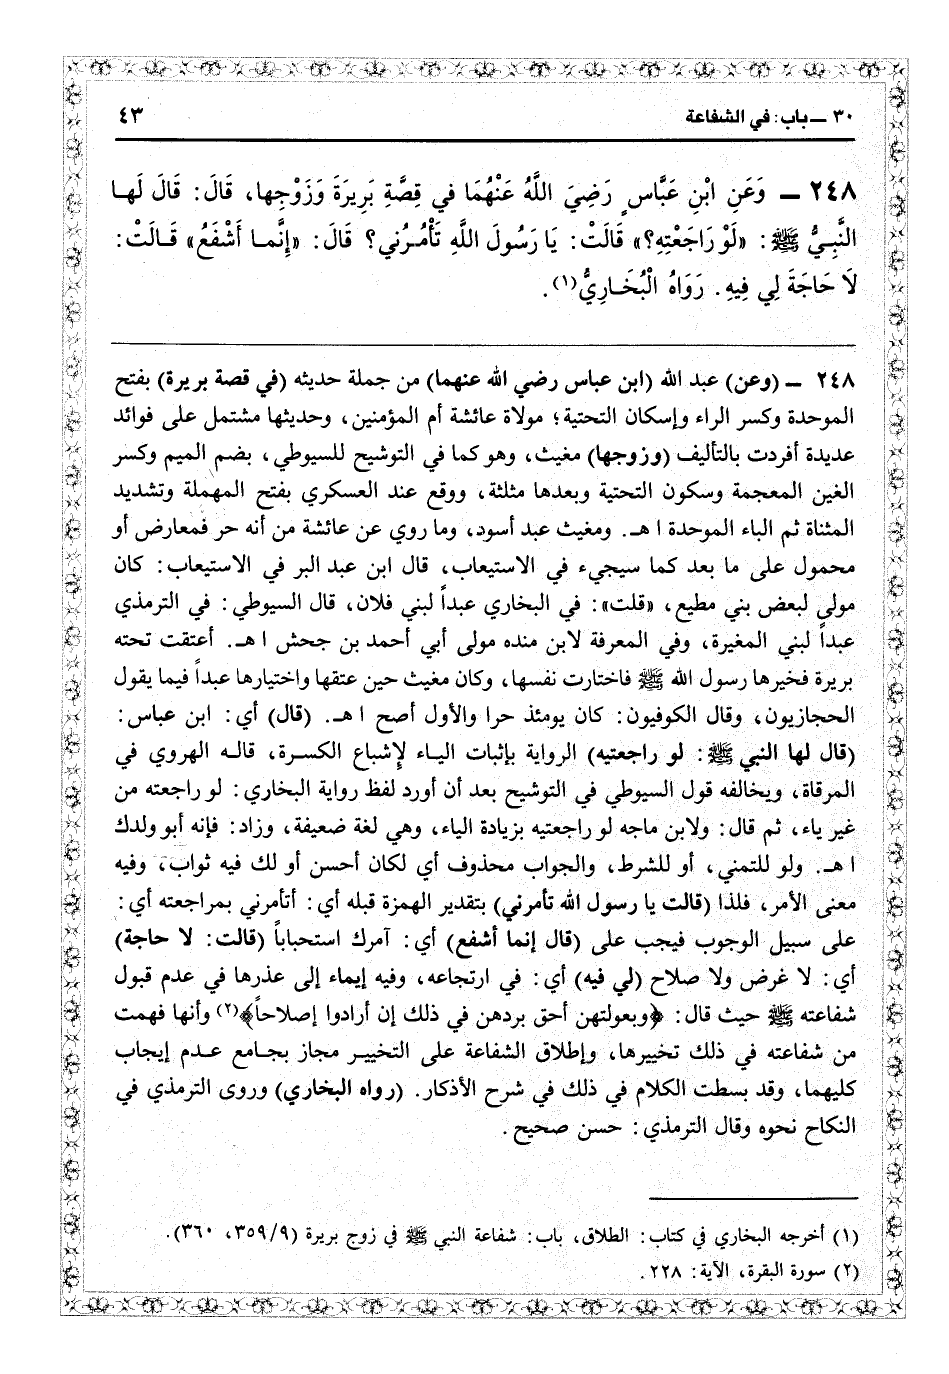 ٣٠ ــ باب: في الشفاعة
٤٣
٢٤٨ ــ وَعَنِ ابْنِ عَبَّاسٍ رَضِيَ اللَّهُ عَنْهُمَا في قِصَّةِ بَرِيرَةَ وَزَوْجِها، قَالَ: قَالَ لَها
النَّبِيُّ ﷺ: «لَوْ رَاجَعْتِهِ؟» قَالَتْ: يَا رَسُولَ اللَّهِ تَأْمُرُني؟ قَالَ: «إنَّما أَشْفَعُ» قَـالَتْ:
لاَ حَاجَةَ لِي فِيهِ. رَوَاهُ الْبُخَارِيُّ(١).
٢٤٨ ــ (وعن) عبد الله (ابن عباس رضي الله عنهما) من جملة حديثه (في قصة بريرة) بفتح
الموحدة وكسر الراء وإسكان التحتية؛ مولاة عائشة أم المؤمنين، وحديثها مشتمل على فوائد
عديدة أفردت بالتأليف (وزوجها) مغيث، وهو كما في التوشيح للسيوطي، بضم الميم وكسر
الغين المعجمة وسكون التحتية وبعدها مثلثة، ووقع عند العسكري بفتح المهملة وتشديد
المثناة ثم الباء الموحدة ا هـ. ومغيث عبد أسود، وما روي عن عائشة من أنه حر فمعارض أو
محمول على ما بعد كما سيجيء في الاستيعاب، قال ابن عبد البر في الاستيعاب: كان
مولى لبعض بني مطيع، «قلت»: في البخاري عبداً لبني فلان، قال السيوطي: في الترمذي
عبداً لبني المغيرة، وفي المعرفة لابن منده مولى أبي أحمد بن جحش ا هـ. أعتقت تحته
بريرة فخيرها رسول الله ﷺ فاختارت نفسها، وكان مغيث حين عتقها واختيارها عبداً فيما يقول
الحجازيون، وقال الكوفيون: كان يومئذ حرا والأول أصح ا هـ. (قال) أي: ابن عباس:
(قال لها النبي ﷺ: لو راجعتيه) الرواية بإثبات الياء لإشباع الكسرة، قاله الهروي في
المرقاة، ويخالفه قول السيوطي في التوشيح بعد أن أورد لفظ رواية البخاري: لو راجعته من
غير ياء، ثم قال: ولابن ماجه لو راجعتيه بزيادة الياء، وهي لغة ضعيفة، وزاد: فإنه أبو ولدك
ا هـ. ولو للتمني، أو للشرط، والجواب محذوف أي لكان أحسن أو لك فيه ثواب، وفيه
معنى الأمر، فلذا (قالت يا رسول الله تأمرني) بتقدير الهمزة قبله أي: أتأمرني بمراجعته أي:
على سبيل الوجوب فيجب على (قال إنما أشفع) أي: آمرك استحباباً (قالت: لا حاجة)
أي: لا غرض ولا صلاح (لي فيه) أي: في ارتجاعه، وفيه إيماء إلى عذرها في عدم قبول
شفاعته ﷺ حيث قال: ﴿وبعولتهن أحق بردهن في ذلك إن أرادوا إصلاحاً﴾(٢) وأنها فهمت
من شفاعته في ذلك تخييرها، وإطلاق الشفاعة على التخيير مجاز بجامع عدم إيجاب
كليهما، وقد بسطت الكلام في ذلك في شرح الأذكار. (رواه البخاري) وروى الترمذي في
النكاح نحوه وقال الترمذي: حسن صحيح.
(١) أخرجه البخاري في كتاب: الطلاق، باب: شفاعة النبي ﷺ في زوج بريرة (٣٥٩/٩، ٣٦٠).
(٢) سورة البقرة، الآية: ٢٢٨.